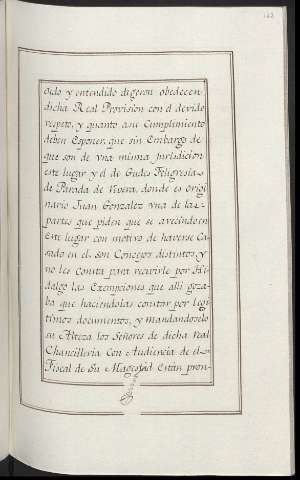 oido y entendido digeron obedecen
dicha Real Provision con el devido
respeto, y quanto a su Cumplimiento
deben Esponer, que sin Embargo de
que son de vna misma jurisdicion
este lugar y el de Gudes Feligresia
de Parada de Rivera, donde es origi
nario Juan Gonzalez vna de las
partes que piden que se avecinden
este lugar con motivo de haverse Ca
sado en el, son Concejos distintos y
no les consta para recivirle por Hi-
dalgo las Exempciones que alli goza-
ba que haciendolas constar por legi
timos documentos, y mandandoselo
su Alteza los Señores de dicha Real
Chancilleria Con Audiencia de el
Fiscal de Su Magestad Están pron-